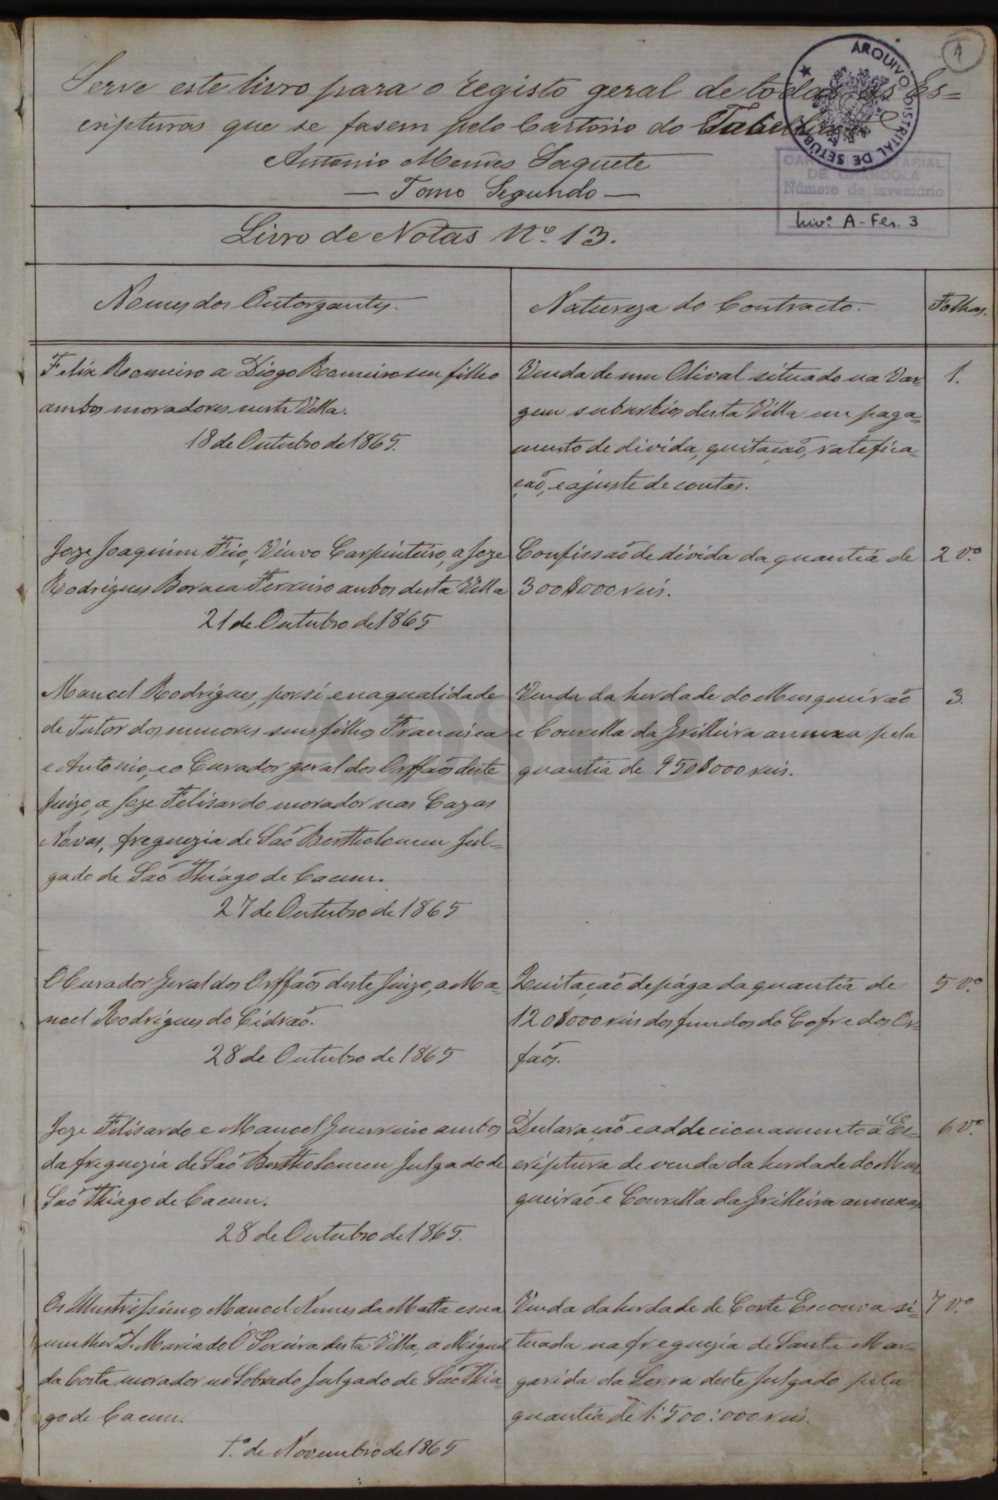 1
Serve este livro para o registo geral de todas as Es=
cripturas que se fasem pelo Cartorio do Tabelião
Antonio Mendes Saquete
— Tomo Segundo —
ARQUIVO DISTRITAL DE SETÚBAL
CARTÓRIO NOTARIAL
DE GRÂNDOLA
Número de inventário
Livº A-Fer. 3
Livro de Notas Nº 13.
Nomes dos Outorgantes.
Natureza do Contracto.
Folhas.
Felix Romeiro a Diogo Romeiro seu filho
ambos moradores nesta Villa.
18 de Outubro de 1865.
Venda de um Olival situado na Var
gem suburbios desta Villa em paga=
mento de divida, quitação, ratefica=
ção, e ajuste de contas.
1.
Joze Joaquim Feio, Viuvo Carpinteiro, a Joze
Rodrigues Ferreiro ambos desta Villa
21 de Outubro de 1865
Confiessaõ de divida da quantia de
300$000 reis.
2 vº
Manoel Rodrigues, por si e na qualidade
de Tutor dos menores seus filhos Francisca
e Antonio, e o Curador geral dos Orffaõs deste
Juizo, a Joze Felisardo morador nas Cazas
Novas, freguezia de Saõ Bertholomeu Jul=
gado de Saõ Thiago de Cacem.
27 de Outubro de 1865
Venda da herdade do Musgueiraõ
e Courella da Grilleira annexa pela
quantia de 950$000 reis.
3.
ADSTB
O Curador Geral dos Orffaõs deste Juizo, a Ma=
noel Rodrigues do Cidraõ.
28 de Outubro de 1865
Quitaçaõ de pága da quantia de
120$000 reis dos fundos do Cofre dos Or=
faõs.
5 vº
Joze Felisardo e Manoel Guerreiro ambos
da freguezia de Saõ Bertholomeu Julgado de
Saõ Thiago de Cacem.
28 de Outubro de 1865.
Declaraçaõ e addecionamento á Es=
criptura de venda da herdade do Mus
gueiraõ e Courella da Grilleira annexa.
6 vº
Os Illustrissimos Manoel Nunes da Matta e sua
mulher D. Maria do Ó Pereira desta Villa, a Miguel
da Costa morador no Sobrado Julgado de Saõ Thia=
go de Cacem.
1º de Novembro de 1865
Venda da herdade de Corte Escoura si=
tuada na freguezia de Santa Mar=
garida da Serra deste Julgado pela
quantia de 1:500:000 reis.
7 vº